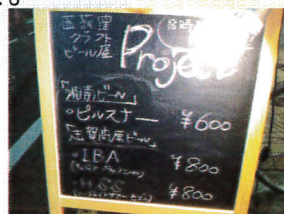 西荻窪
クラフト
ビール屋
Project
「湘南ビール」
○ピルスナー ¥600
「志賀高原ビール」
○IBA ¥800
¥800